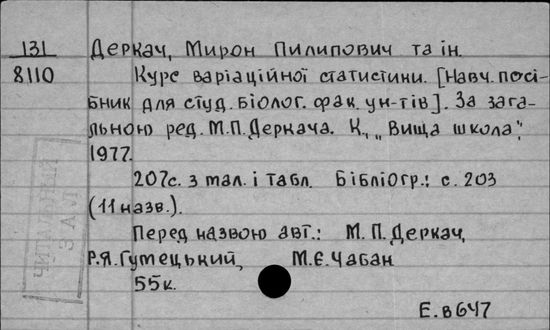 131 Деркач, Мирон Пилипович та ін.
8110 Курс варіаційної статистики. [Навч. посі-
бник для студ. біолог. фак. ун-тів]. За зага-
льною ред. М.П.Деркача. К., „Вища школа",
1977.
207с. з мал. і табл. Бібліогр.: с. 203
(11 назв.).
Перед назвою авт.: М.П.Деркач,
Р.Я.Гутецький, М.Є.Чабан
55к.
Е.в647
ЧИТАЛЬНЫЙ
ЗАЛ